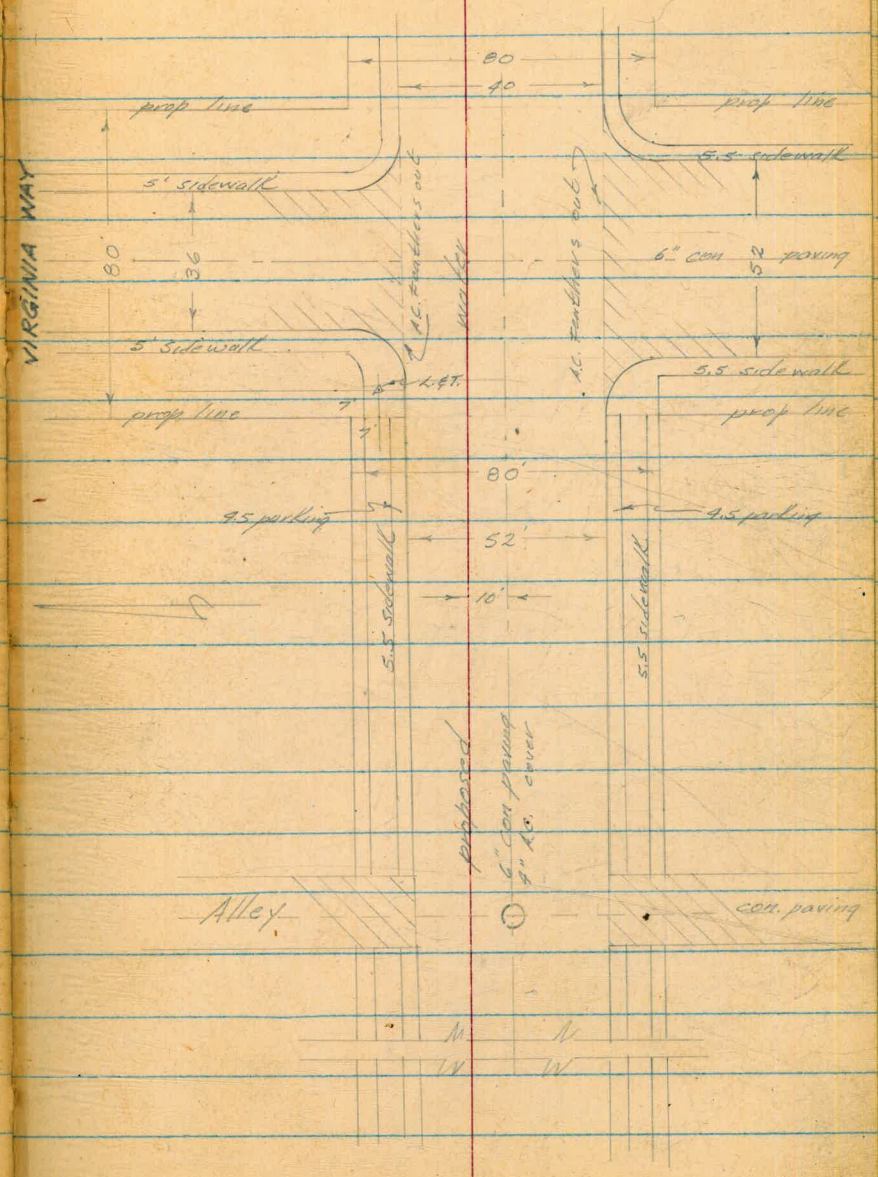 80
40
prop line
prop line
5.5 sidewalk
5' sidewalk
A.C. Feathers out
A.C. Feathers out
VIRGINIA WAY
80
36
water
6" con paving
52
5' sidewalk
L & T.
5.5 sidewalk
7'
7'
prop. line
prop line
80'
4.5 parking
4.5 parking
52'
10'
5.5 sidewalk
5.5 sidewalk
proposed
6" con paving
4" A.C. cover
Alley
con. paving